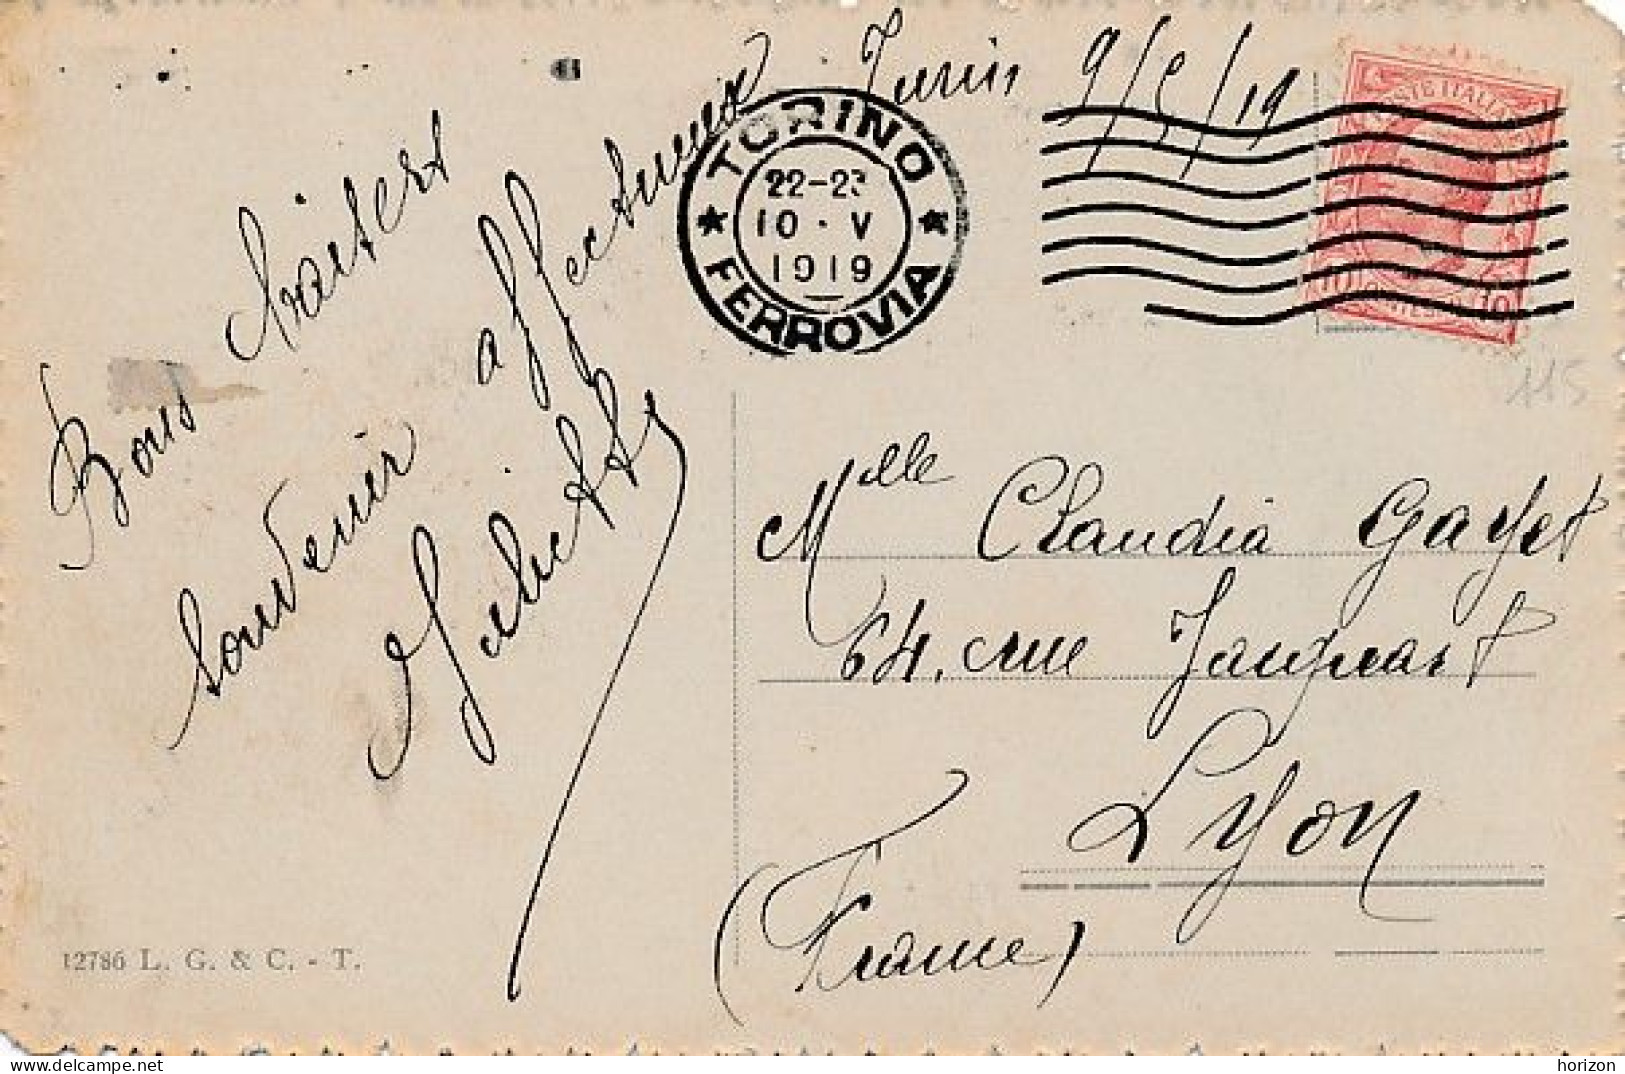 Turin 9/5/19
TORINO
22-23
10 · V
1919
FERROVIA
POSTE ITALIANE
10 10
115
Bons baisers
souvenir affectueux
Mlle Claudia Gayet
64, rue Jacquart
Lyon
(France)
12786 L. G. & C. - T.
delcampe.net
horizon